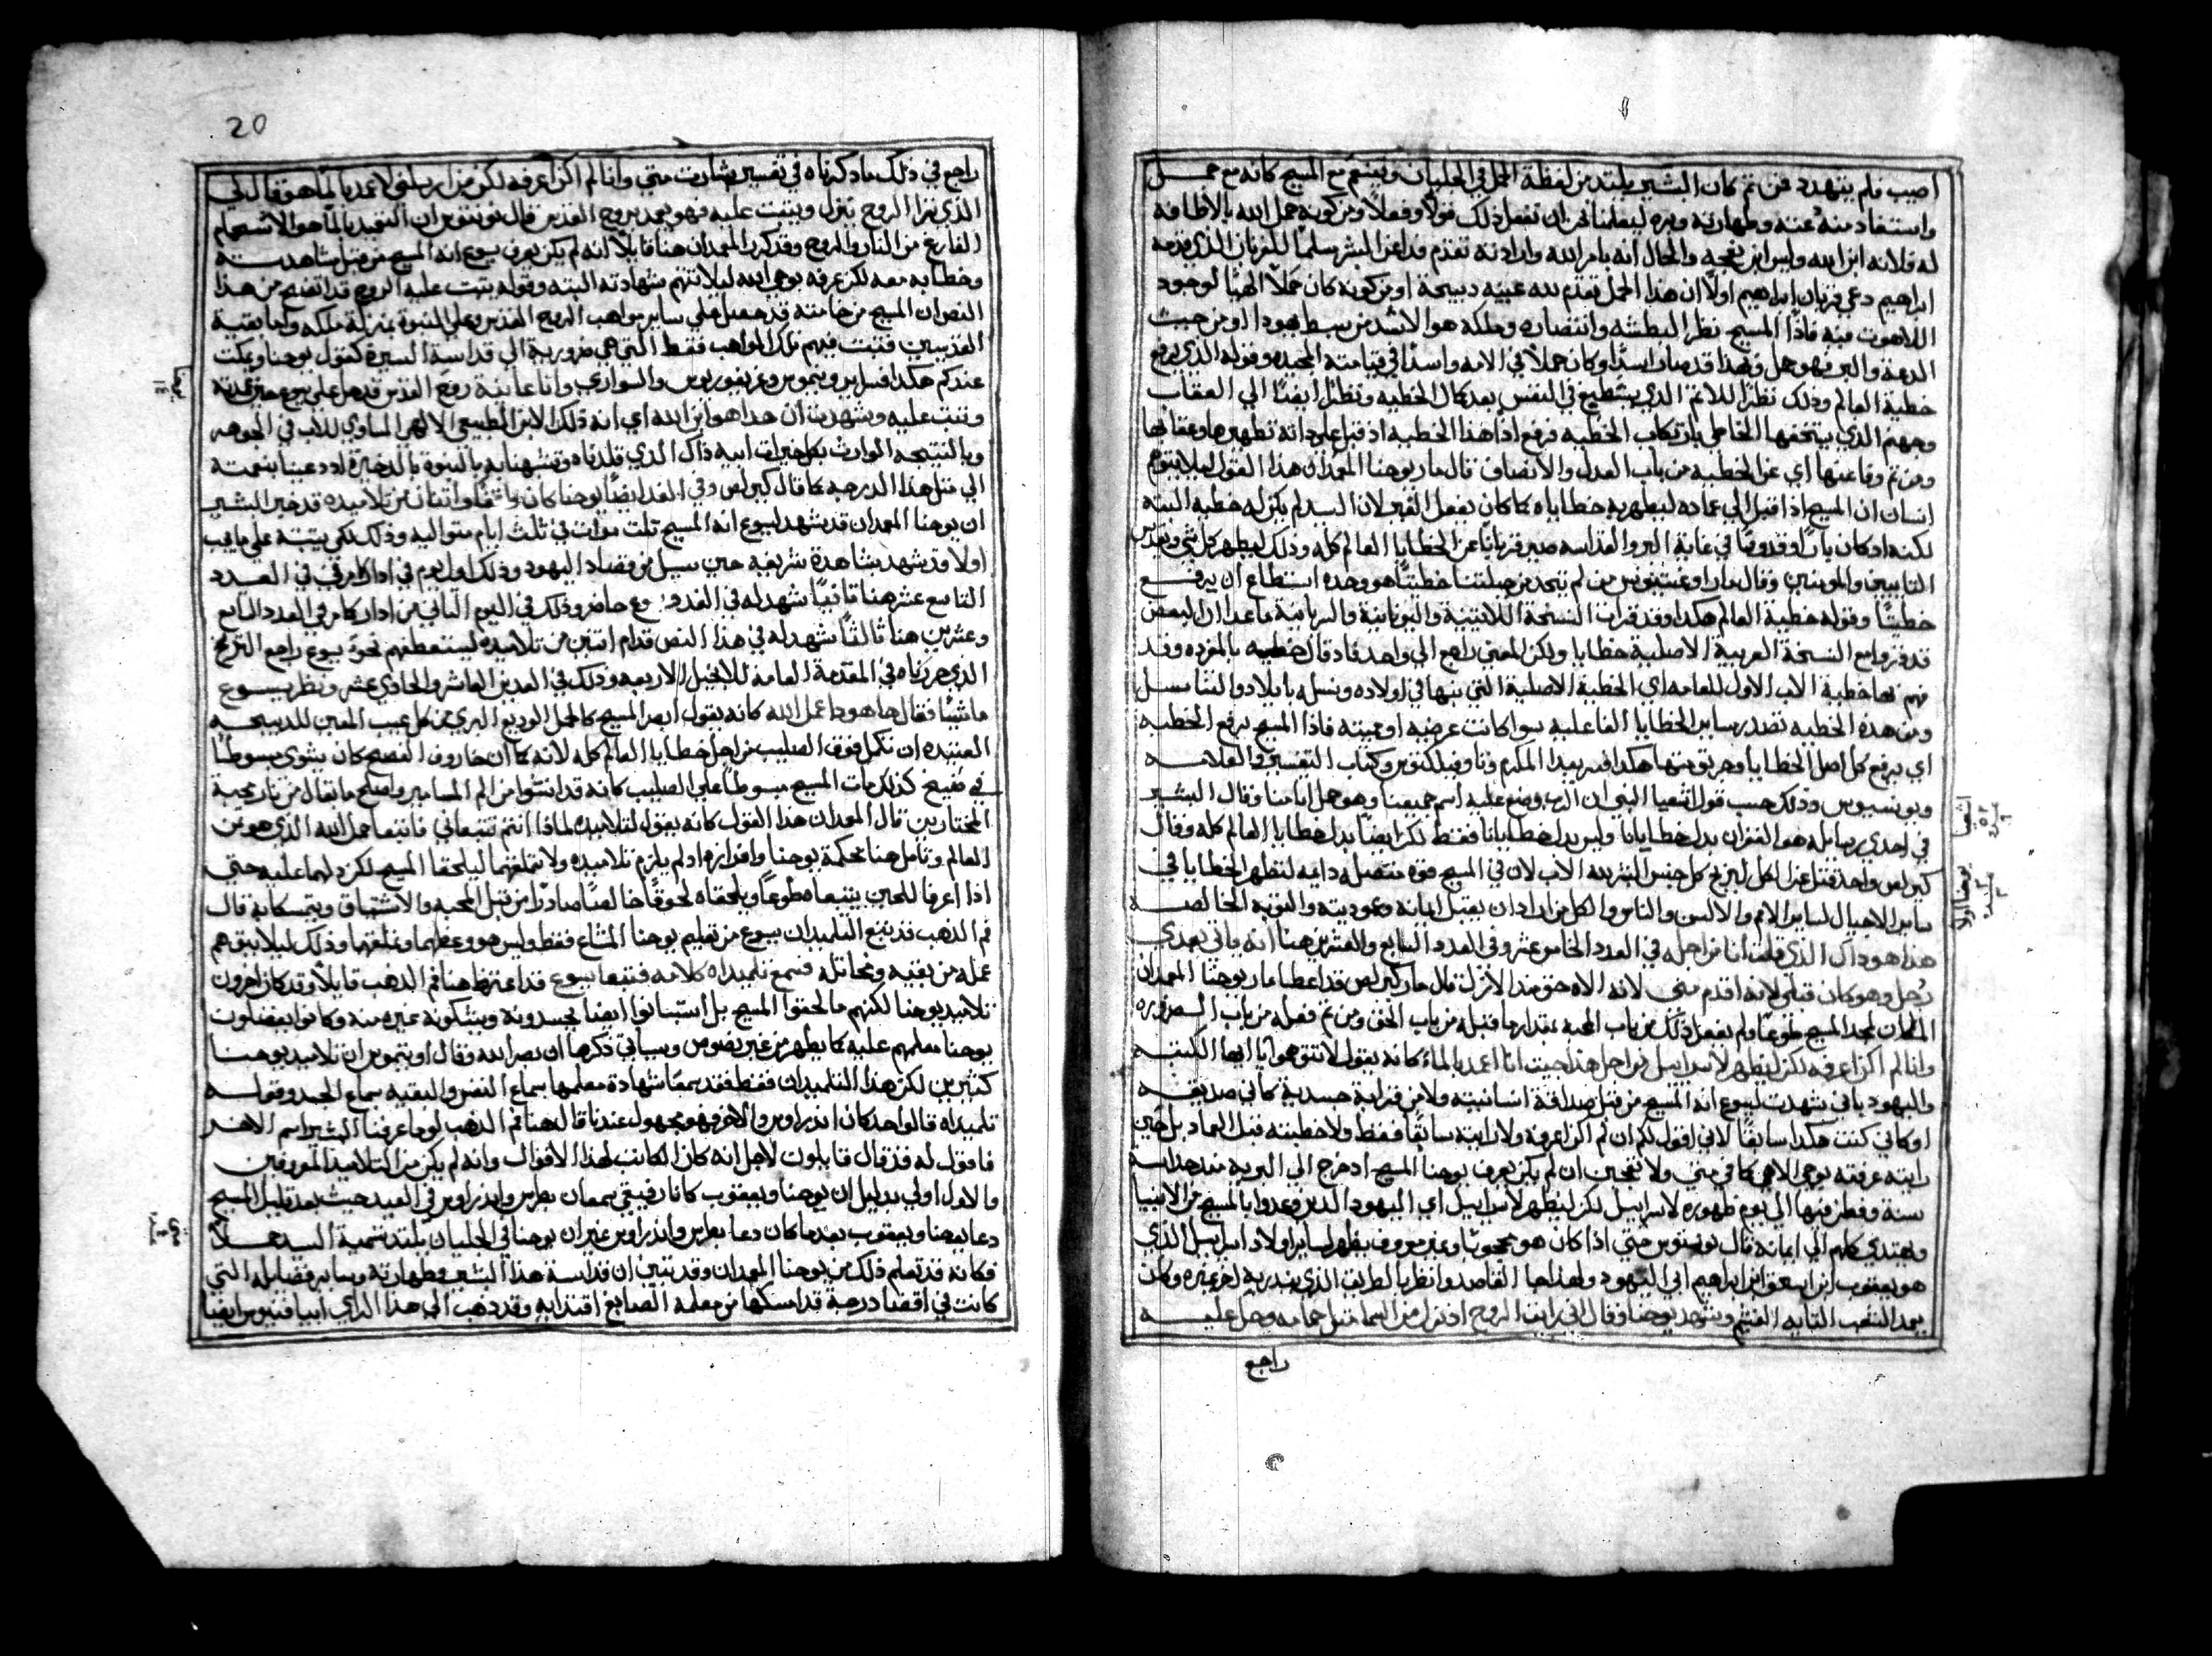 اصيب فلم يتهدد فمن ثم كان البشير يلتد من لفظة الحمل في الجليان وتبشم مع المسيح كانه مع حمل
واستفاد منه عنته وطهارته وبره ليعلمنا نحن ان نفعل ذلك قولا وفعلا ومن كونه حمل الله بالاضافه
له فلانه ابن الله وليس ابن نعجه والحال انه بامر الله وارادته تقدم فدا عن البشر سلما للقربان الذي قدمه
ابراهيم دعي قربان ابراهيم اولا ان هذا الحمل تقدم لله عينه دبيحة او من كونه كان حملا الهيا لوجود
اللاهوت فيه فاذا المسيح نظرا لبطشه وانتصاره وملكه هو الاسد من سبط يهودا او من حيث
الدعة والبر فهو حمل فهذا قد صار اسدا وكان حملا في الامه واسدا في قيامته المجيده وقوله الذي يرفع
خطية العالم وذلك نظرا للاثم الذي يستطيع في النفس بعد كمال الخطيه ونظرا ايضا الي العقاب
وجهنم الذي يستحقها الخاطي بارتكاب الخطيه فرفع اذا هذا الخطيه اذ قبل علي داته تطهيرها وعقابها
ومن ثم وفا عنها اي عن الخطيه من باب العدل والانصاف قال مار يوحنا المعمدان هذا القول ليلا يتوهم
انسان ان المسيح اذا اقبل الي عماده ليطهر به خطاياه كما كان يفعل الغير لان السيد لم يكن له خطيه البته
لكنه اد كان بارا وقدوسا في غاية البر والقداسه صير قربانا عن الخطايا العالم كله وذلك ليطهر كل شي ويقدس
التايبين والمومنين وقال مار اوغستينوس من لم يتخد من جبلتنا خطيتنا هو وحده استطاع ان يرفع
خطيتنا وقوله خطية العالم هكدا وقد قرات النسخة اللاتينية واليونانية والسريانية ماعدا ان البعض
قد قروا مع النسخة العربية الاصلية خطايا ولكن المعني راجع الي واحد فاد قال خطيه بالمفرده وقد
فهم بها خطية الاب الاول للعامه اي الخطية الاصلية التي بثها في اولاده ونسله بايلاد والتناسل
ومن هده الخطيه تصدر ساير الخطايا الفاعليه سوا كانت عرضيه او مميته فاذا المسيح يرفع الخطيه
اي يرفع كل اصل الخطايا وجريرتها هكدا فسر بيدا المكرم وتاوفيلكتوس وكتاب التفسير والعلامه
وبونسيوس وذلك حسب قول اشعيا النبي ان الرب وضع عليه اسم جميعنا وهو حمل اثامنا وقال البشير
في احدي رسايله هو الغفران بدل خطايانا وليس بدل خطايانا فقط لكن ايضا بدل خطايا العالم كله وقال
كيرلص واحد قتل عن الكل ليربح كل جنس البشر لله الاب لان في المسيح قوه متصله دايمه لتطهر الخطايا في
ساير الاجيال لساير الامم والالسن والناس والكل من اراد ان يقبل ايمانه ومعموديته والتوبه الخالصه
هذا هو داك الذي قلت انا من اجله في العدد الخامس عشر وفي العدد السابع والعشرين هنا انه ياتي بعدي
رجل وهو كان قبلي لانه اقدم مني لانه الاه حق مند الازل قال مار كيرلص قد اعطا مار يوحنا المعمدان
المكان لمجد المسيح طوعا ولم يفعل ذلك من باب المحبه بمقدار ما قبله من باب الحق ومن ثم فعله من باب الضروره
وانا لم اكن اعرفه لكن ليظهر لاسراييل من اجل هذا جيت انا اعمد بالماء كانه يقول لا تتوهموا يا ايها الكتبه
واليهود باني شهدت ليسوع انه المسيح من قبل صداقة انسانيته ولا من قرابة جسدية كاني صديقه
او كاني كنت هكدا سابقا لاني اقول لكم ان لم اكن اعرفه ولا رايته سابقا فقط ولا خطبته قبل العماد بل حين
رايته عرفته بوحي الاهي كافي مني ولا تعجبن ان لم يكن يعرف يوحنا المسيح اد خرج الي البرية مند حداثه
سنه وقطن فيها الي يوم ظهوره لاسراييل لكن ليظهر لاسراييل اي اليهود الدين وعدوا بالمسيح من الانبيا
ويهتدي كلهم الي ايمانه قال يونسيوس حتي اذا كان هو محجوبا وغير معروف يظهر لساير اولاد اسراييل الذي
هو يعقوب ابن اسحق ابن ابراهيم ابي اليهود ولهذا جا القاصد وانظر بالطريق الذي يندر به لاخر غيره وكان
يعمد الشعب التايه الغشيم وشهد يوحنا وقال اني رايت الروح اد نزل من السما مثل حمامه وحل عليه
راجع
اشعيا
يوحنا اول
20
راجع في ذلك ما دكرناه في تفسير بشارت متي وانا لم اكن اعرفه لكن من ارسلني لاعمد بالما هو قال لي
الذي ترا الروح ينزل ويثبت عليه فهو يعمد بروح القدس قال يونسيوس ان التعميد بالما هو الاستحمام
الفارغ من النار والروح وقد كرر المعمدان هنا قايلا انه لم يكن يعرف يسوع انه المسيح من قبل مشاهدته
وخطابه معه لكن عرفه بوحي الله ليلا تتهم شهادته البته وقوله يثبت عليه الروح قد اتضح من هذا
النص ان المسيح من خامته قد حصل علي ساير مواهب الروح القدس وعلي النبوة بمنزلة ملكه واما بقية
القديسين فتبت فيهم تلك المواهب فقط التي هي ضرورية الي قداسة السيرة كقول يوحنا ويمكث
عندكم هكدا فسر ايرونيموس وغريغوريوس والسواري وانا عاينة روح القدس قد حل علي يسوع حين عمدته
وتبت عليه وشهدت ان هدا هو ابن الله اي انه ذلك الابن الطبيعي الالهي المساوي للاب في الجوهر
وبالنتيجه الوارث بكل خيرات ابيه ذاك الذي قلدناه وتشبهنا به بالبنوة بالدخيرة اد دعينا بنعمته
الي مثل هذا الدرجه كما قال كيرلص وفي الغد ايضا يوحنا كان واقفا واتنان من تلاميده قد خبر البشير
ان يوحنا المعمدان قد شهد ليسوع انه المسيح ثلث مرات في ثلث ايام متواليه وذلك لكي يتبته علي ما يجب
اولا قد شهد بشاهدة شريفه حين سيل من قصاد اليهود وذلك اول يوم في ادار كما مر في العدد
التاسع عشر هنا تانيا شهد له في الغدو وهو حاضر وذلك في اليوم التاني من ادار كما مر في العدد التاسع
وعشرين هنا ثالثا شهد له في هذا النص قدام اتنين من تلاميده ليستعطفهم نحو يسوع راجع التاريخ
الذي حررناه في المقدمة العامه للانجيل الاربعه وذلك في العدين العاشر والحادي عشر ونظر يسوع
ماشيا فقال ها هودا حمل الله كانه يقول ابصر المسيح كالحمل الوديع البري من كل عيب المعين للدبيحه
العتيده ان تكمل فوق الصليب من اجل خطايا العالم كله لانه كما ان خاروف الفصح كان يشوي مبسوطا
في صفيح كذلك مات المسيح مبسوطا علي الصليب كانه قد انشوا من الم المسامير واصلح ما يقال من نار محبة
المختارين قال المعمدان هذا القول كانه يقول لتلاميده لماذا انتم تتبعاني فاتبعا حمل الله الذي هو من
العالم وتامل هنا بحكمة يوحنا وافرازه اد لم يلزم تلاميده ولا تملقهما ليلحقا المسيح لكن دلهما عليه حتي
اذا اعرفا للحين يتبعاه طوعا ويلحقاه لحوقا خالصا صادرا من قبل المحبه والاشتياق ويتمسكا به قال
فم الدهب قد يتبع التلميدان يسوع من تعليم يوحنا المشاع فقط وليس هو وعظهما وتملقهما وذلك ليلا يتوهم
عمله من بغيه ونحاتله فسمع تلميداه كلامه فتبعا يسوع قد اعترض هنا فم الدهب قايلا وقد كان اخرون
تلاميد يوحنا لكنهم ما لحقوا المسيح بل استبانوا ايضا يحسدونه ويشكونه غيره منه وكانوا يفضلون
يوحنا معلمهم عليه كما يظهر من غير نصوص وسياتي ذكرها ان نصر الله وقال اوتيميوس ان تلاميد يوحنا
كثيرين لكن هذا التلميدان فقط فقد سمعا شهادة معلمهما سماع النفس والبقيه سماع الجسد وقوله
تلميداه قالوا احد كان اندراوس والاخر فهو مجهول عندنا قال هنا فم الدهب لو ما عرفنا البشير اسم الاخر
فاقول له قد قال قايلون لاجل انه كان الكاتب لهذا الاقوال وانه لم يكن من التلاميد المعروفين
والاول اولي بدليل ان يوحنا ويعقوب كانا رفيقي سمعان بطرس واندراوس في الصيد حيث بعد قليل المسيح
دعا يوحنا ويعقوب بعدما كان دعا بطرس واندراوس غير ان يوحنا في الجليان يلتد بتسمية السيد حملا
فكانه قد تعلم ذلك من يوحنا المعمدان وقد يتبين ان قداسة هذا البشير وطهارته وساير فضايله التي
كانت في اقصا درجة قد امسكها من معلمه الصابغ اقتدا به وقد دهب الي هذا الراي ابيفانيوس ايضا